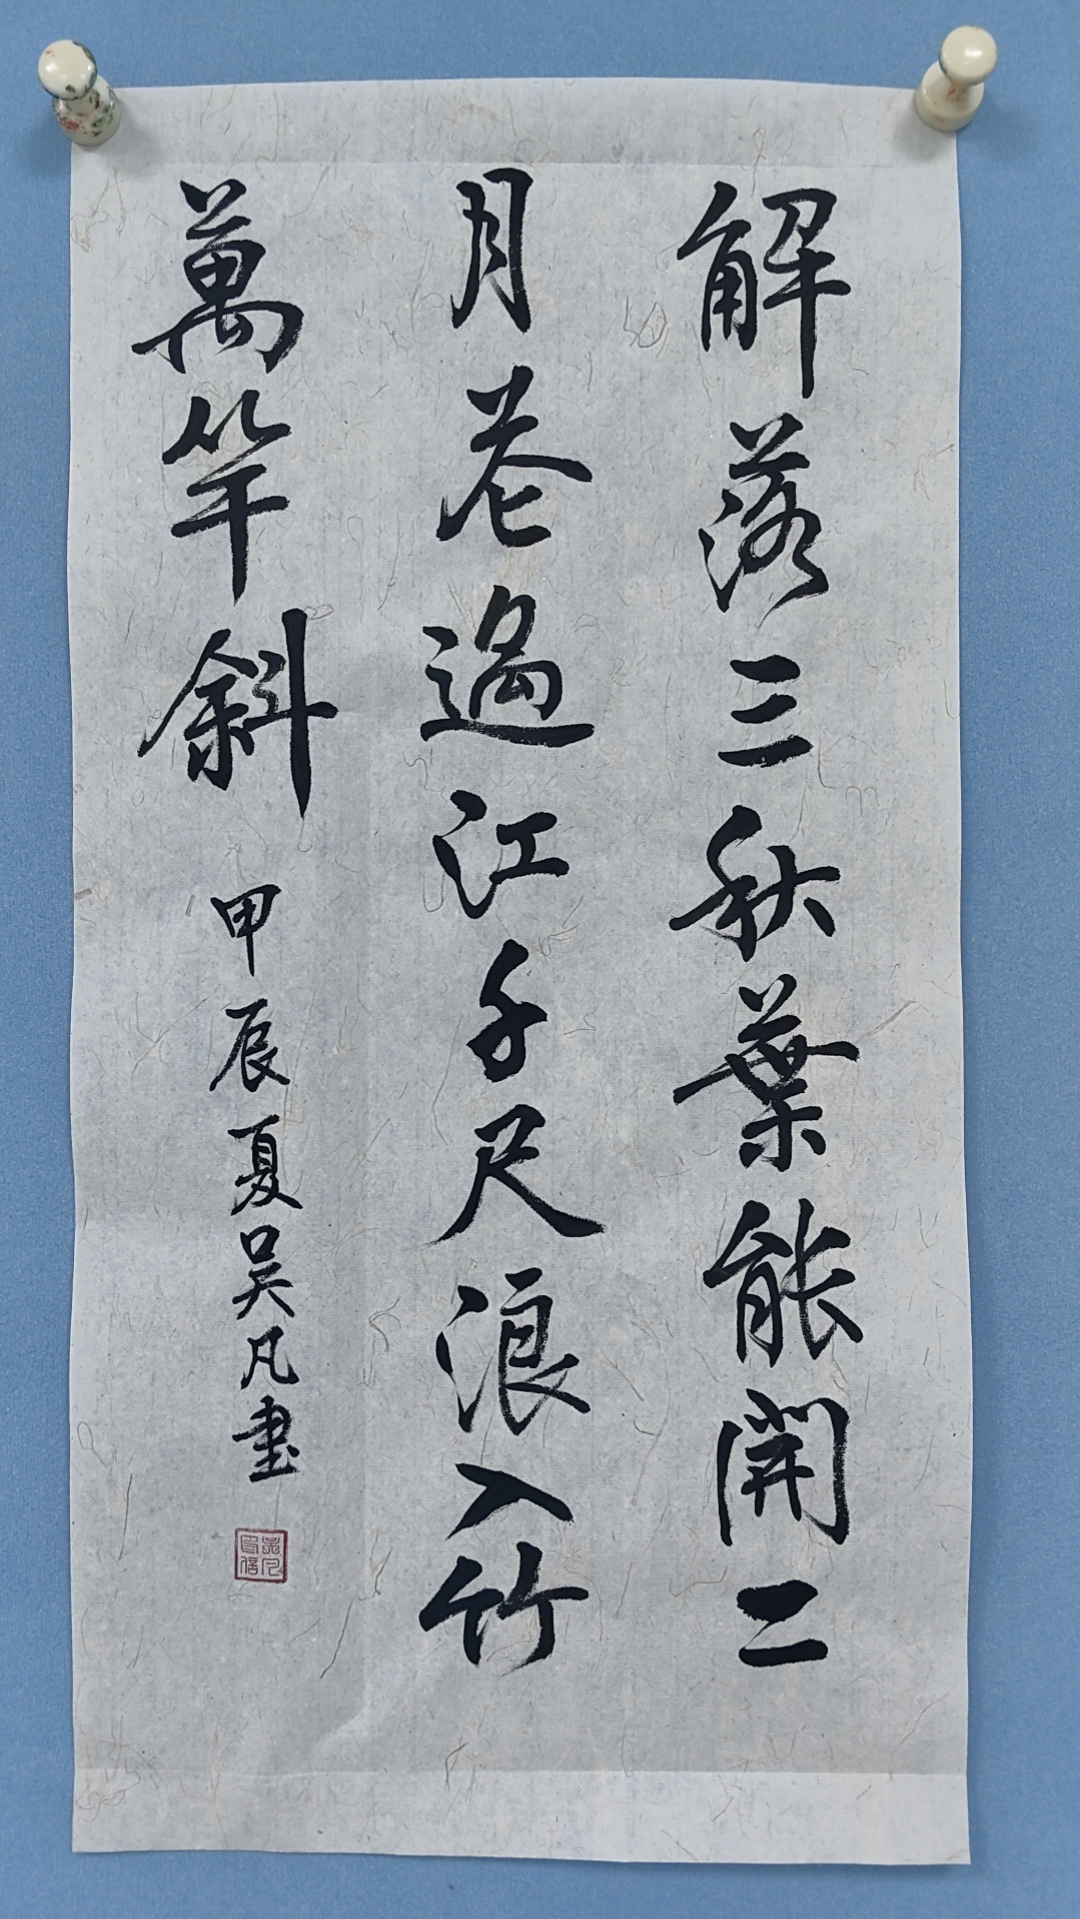 解落三秋葉能開二
月花過江千尺浪入竹
萬竿斜
甲辰夏吳凡書
吳凡印信